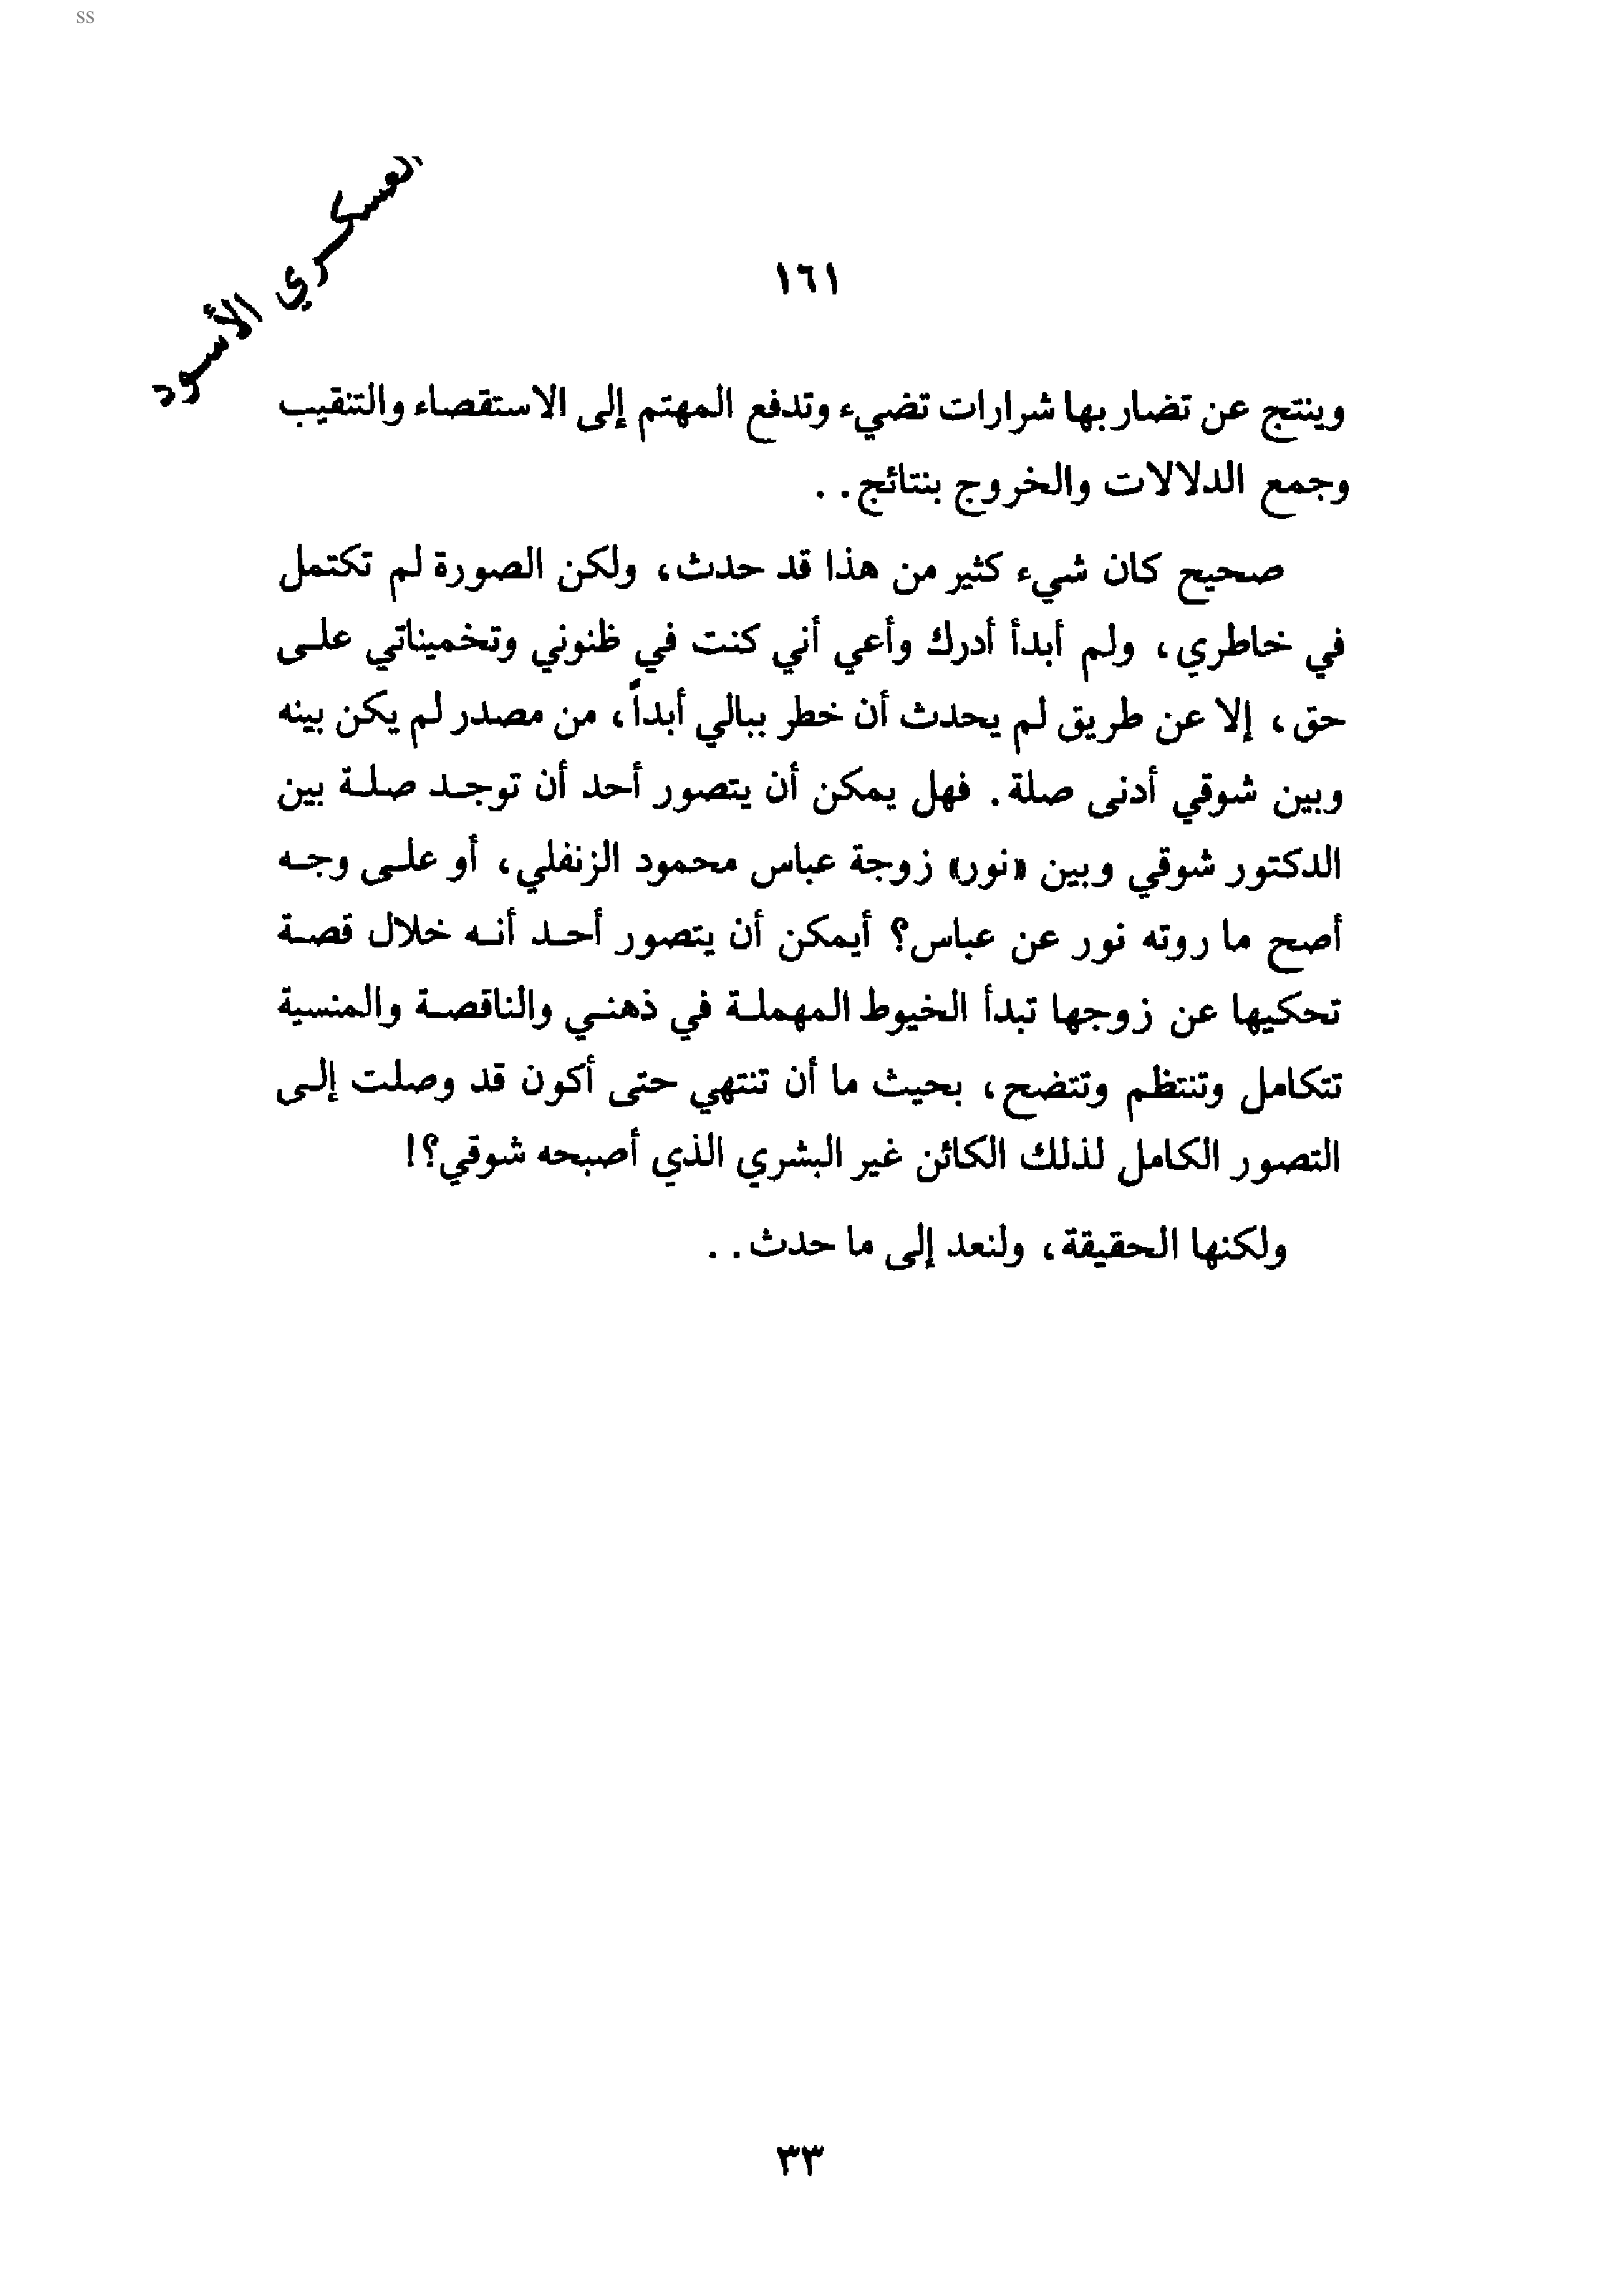 ss
العسكري الأسود
١٦١
وينتج عن تضاربها شرارات تضيء وتدفع المهتم إلى الاستقصاء والتنقيب
وجمع الدلالات والخروج بنتائج . .
صحيح كان شيء كثير من هذا قد حدث، ولكن الصورة لم تكتمل
في خاطري، ولم أبدأ أدرك وأعي أني كنت في ظنوني وتخميناتي علـى
حق، إلا عن طريق لم يحدث أن خطر ببالي أبداً، من مصدر لم يكن بينه
وبين شوقي أدنى صلة. فهل يمكن أن يتصور أحد أن توجـد صلـة بين
الدكتور شوقي وبين «نور» زوجة عباس محمود الزنفلي، أو علـى وجـه
أصح ما روته نور عن عباس؟ أيمكن أن يتصور أحـد أنـه خلال قصـة
تحكيها عن زوجها تبدأ الخيوط المهملـة في ذهنـي والناقصـة والمنسية
تتكامل وتنتظم وتتضح، بحيث ما أن تنتهي حتى أكون قد وصلت إلـى
التصور الكامل لذلك الكائن غير البشري الذي أصبحه شوقي؟!
ولكنها الحقيقة، ولنعد إلى ما حدث . .
٣٣